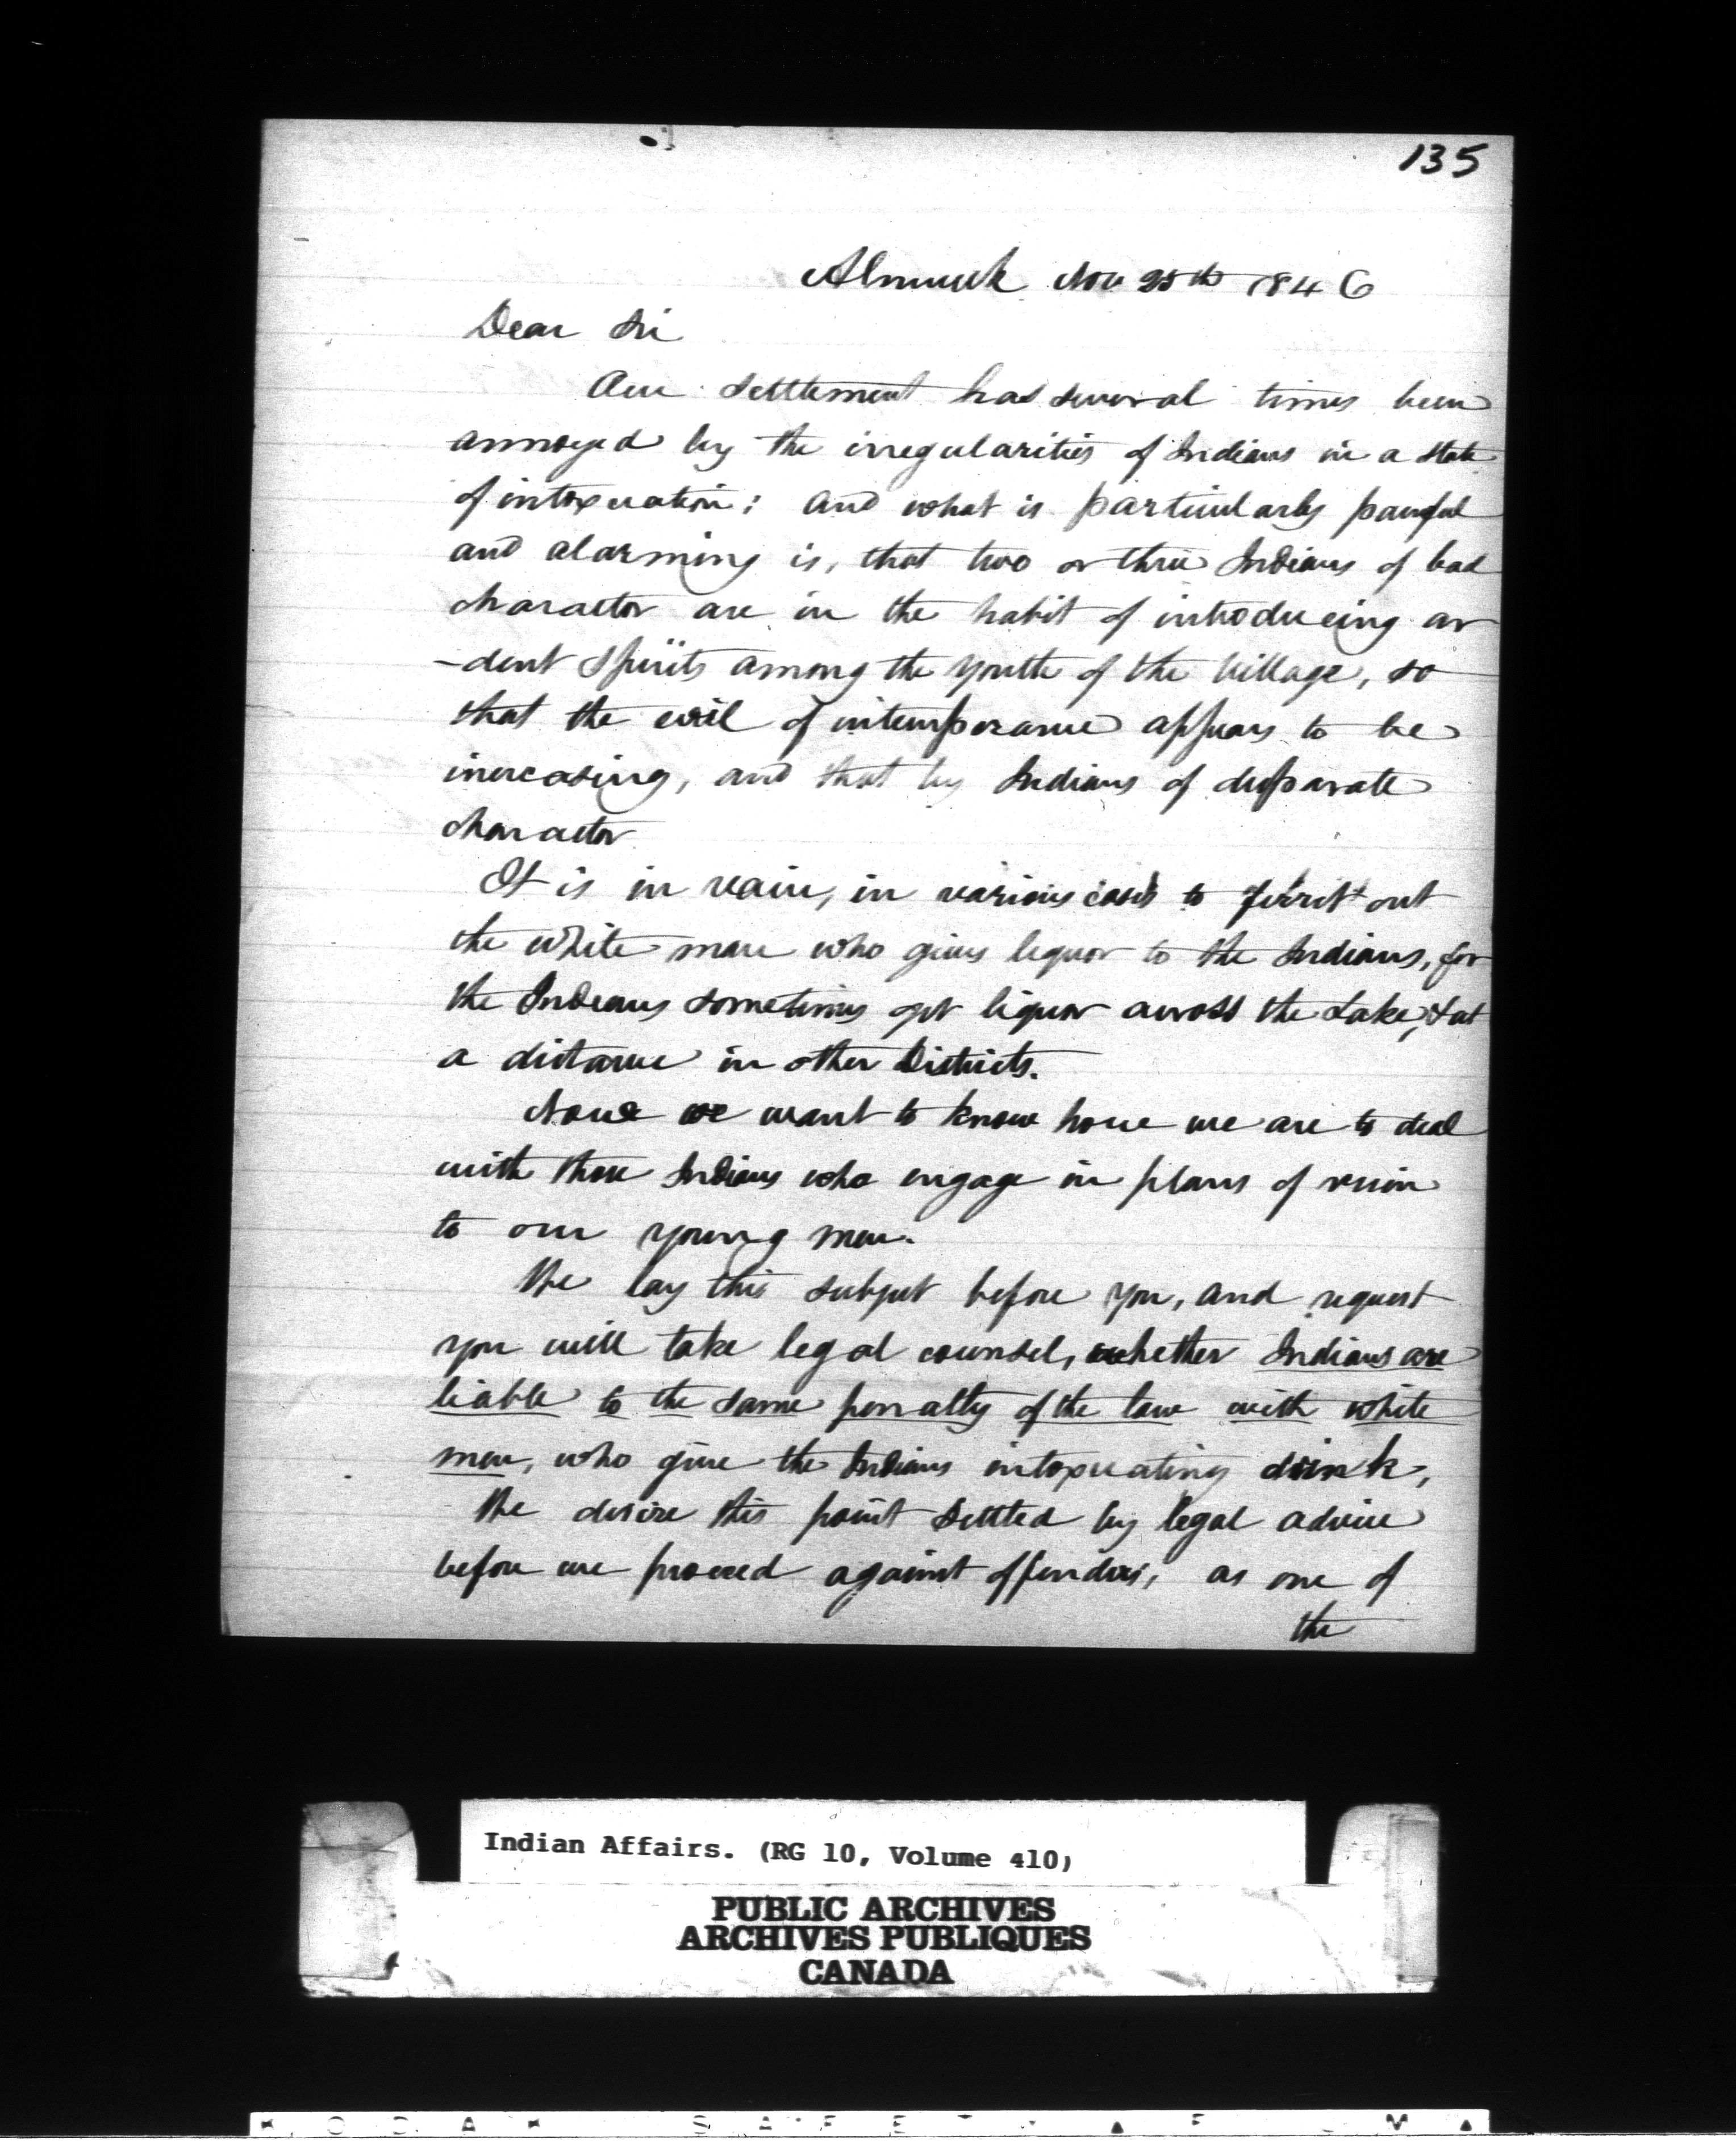 135
Alnwick Nov 28th 1846
Dear Sir
Our settlement has several times been
annoyed by the irregularities of Indians in a state
of intoxication; and what is particularly painful
and alarming is, that two or three Indians of bad
character are in the habit of introducing ar
-dent spirits among the youth of the village, so
that the evil of intemperance appears to be
increasing, and that by Indians of desperate
character
It is in vain, in various cases to ferrit out
the white man who gives liquor to the Indians, for
the Indians sometimes get liquor across the Lake, & at
a distance in other Districts.
Now we want to know how we are to deal
with those Indians who engage in plans of ruin
to our young men.
We lay this subject before you, and request
you will take legal counsel, whether Indians are
liable to the same penalty of the law with white
men, who give the Indians intoxicating drink,
We desire this point settled by legal advice
before we proceed against offenders, as one of
the
Indian Affairs. (RG 10, Volume 410)
PUBLIC ARCHIVES
ARCHIVES PUBLIQUES
CANADA